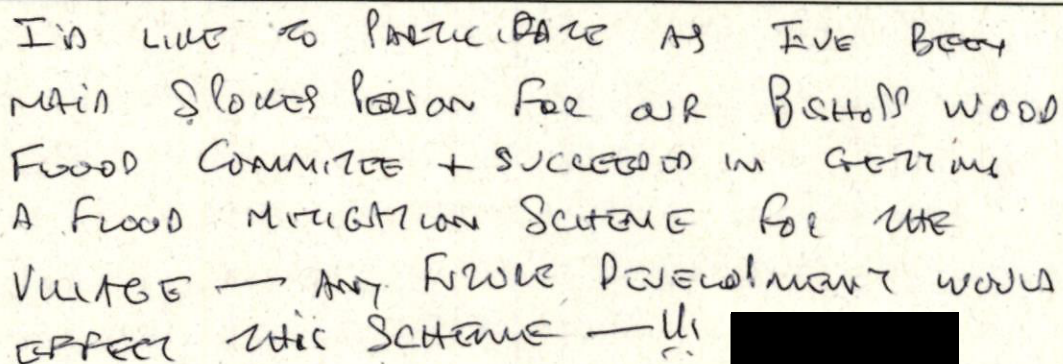 I'D LIKE TO PARTICIPATE AS I'VE BEEN
MAIN SPOKES PERSON FOR OUR BISHOPS WOOD
FLOOD COMMITEE + SUCCEEDED IN GETTING
A FLOOD MITIGATION SCHEME FOR THE
VILLAGE — ANY FUTURE DEVELOPMENT WOULD
EFFECT THIS SCHEME — !!!